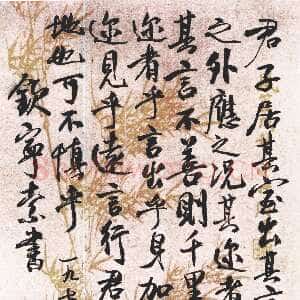 君子居其室出其
之外應之况其迩者
其言不善則千里
迩者乎言出乎身加
迩見乎遠言行君
地也可不慎乎 一九
欽寧索書